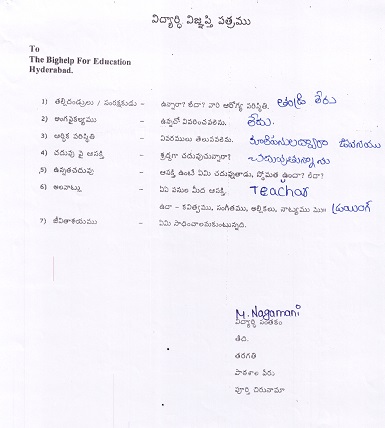 విద్యార్ధి విజ్ఞప్తి పత్రము
To
The Bighelp For Education
Hyderabad.
1) తల్లిదండ్రులు / సంరక్షకుడు - ఉన్నారా? లేదా? వారి ఆరోగ్య పరిస్థితి. తండ్రి లేరు
2) అంగవైకల్యము - ఉన్నచో వివరించవలెను. లేదు.
3) ఆర్ధిక పరిస్థితి - వివరములు తెలుపవలెను. జీవనము
4) చదువు పై ఆసక్తి - శ్రద్ధగా చదువుచున్నారా? చదువుతున్నాను
5) ఉన్నతచదువు - ఆసక్తి ఉంటే ఏమి చదువుతాడు, స్తోమత ఉందా? లేదా?
6) అలవాట్లు - ఏఏ పనుల మీద ఆసక్తి. Teachar
ఉదా - కవిత్వము, సంగీతము, అల్లికలు, నాట్యము మొ॥ డ్రాయింగ్
7) జీవితాశయము - ఏమి సాధించాలనుకుంటున్నది.
M. Nagamani
విద్యార్ధి సంతకం
తేది.
తరగతి
పాఠశాల పేరు
పూర్తి చిరునామా